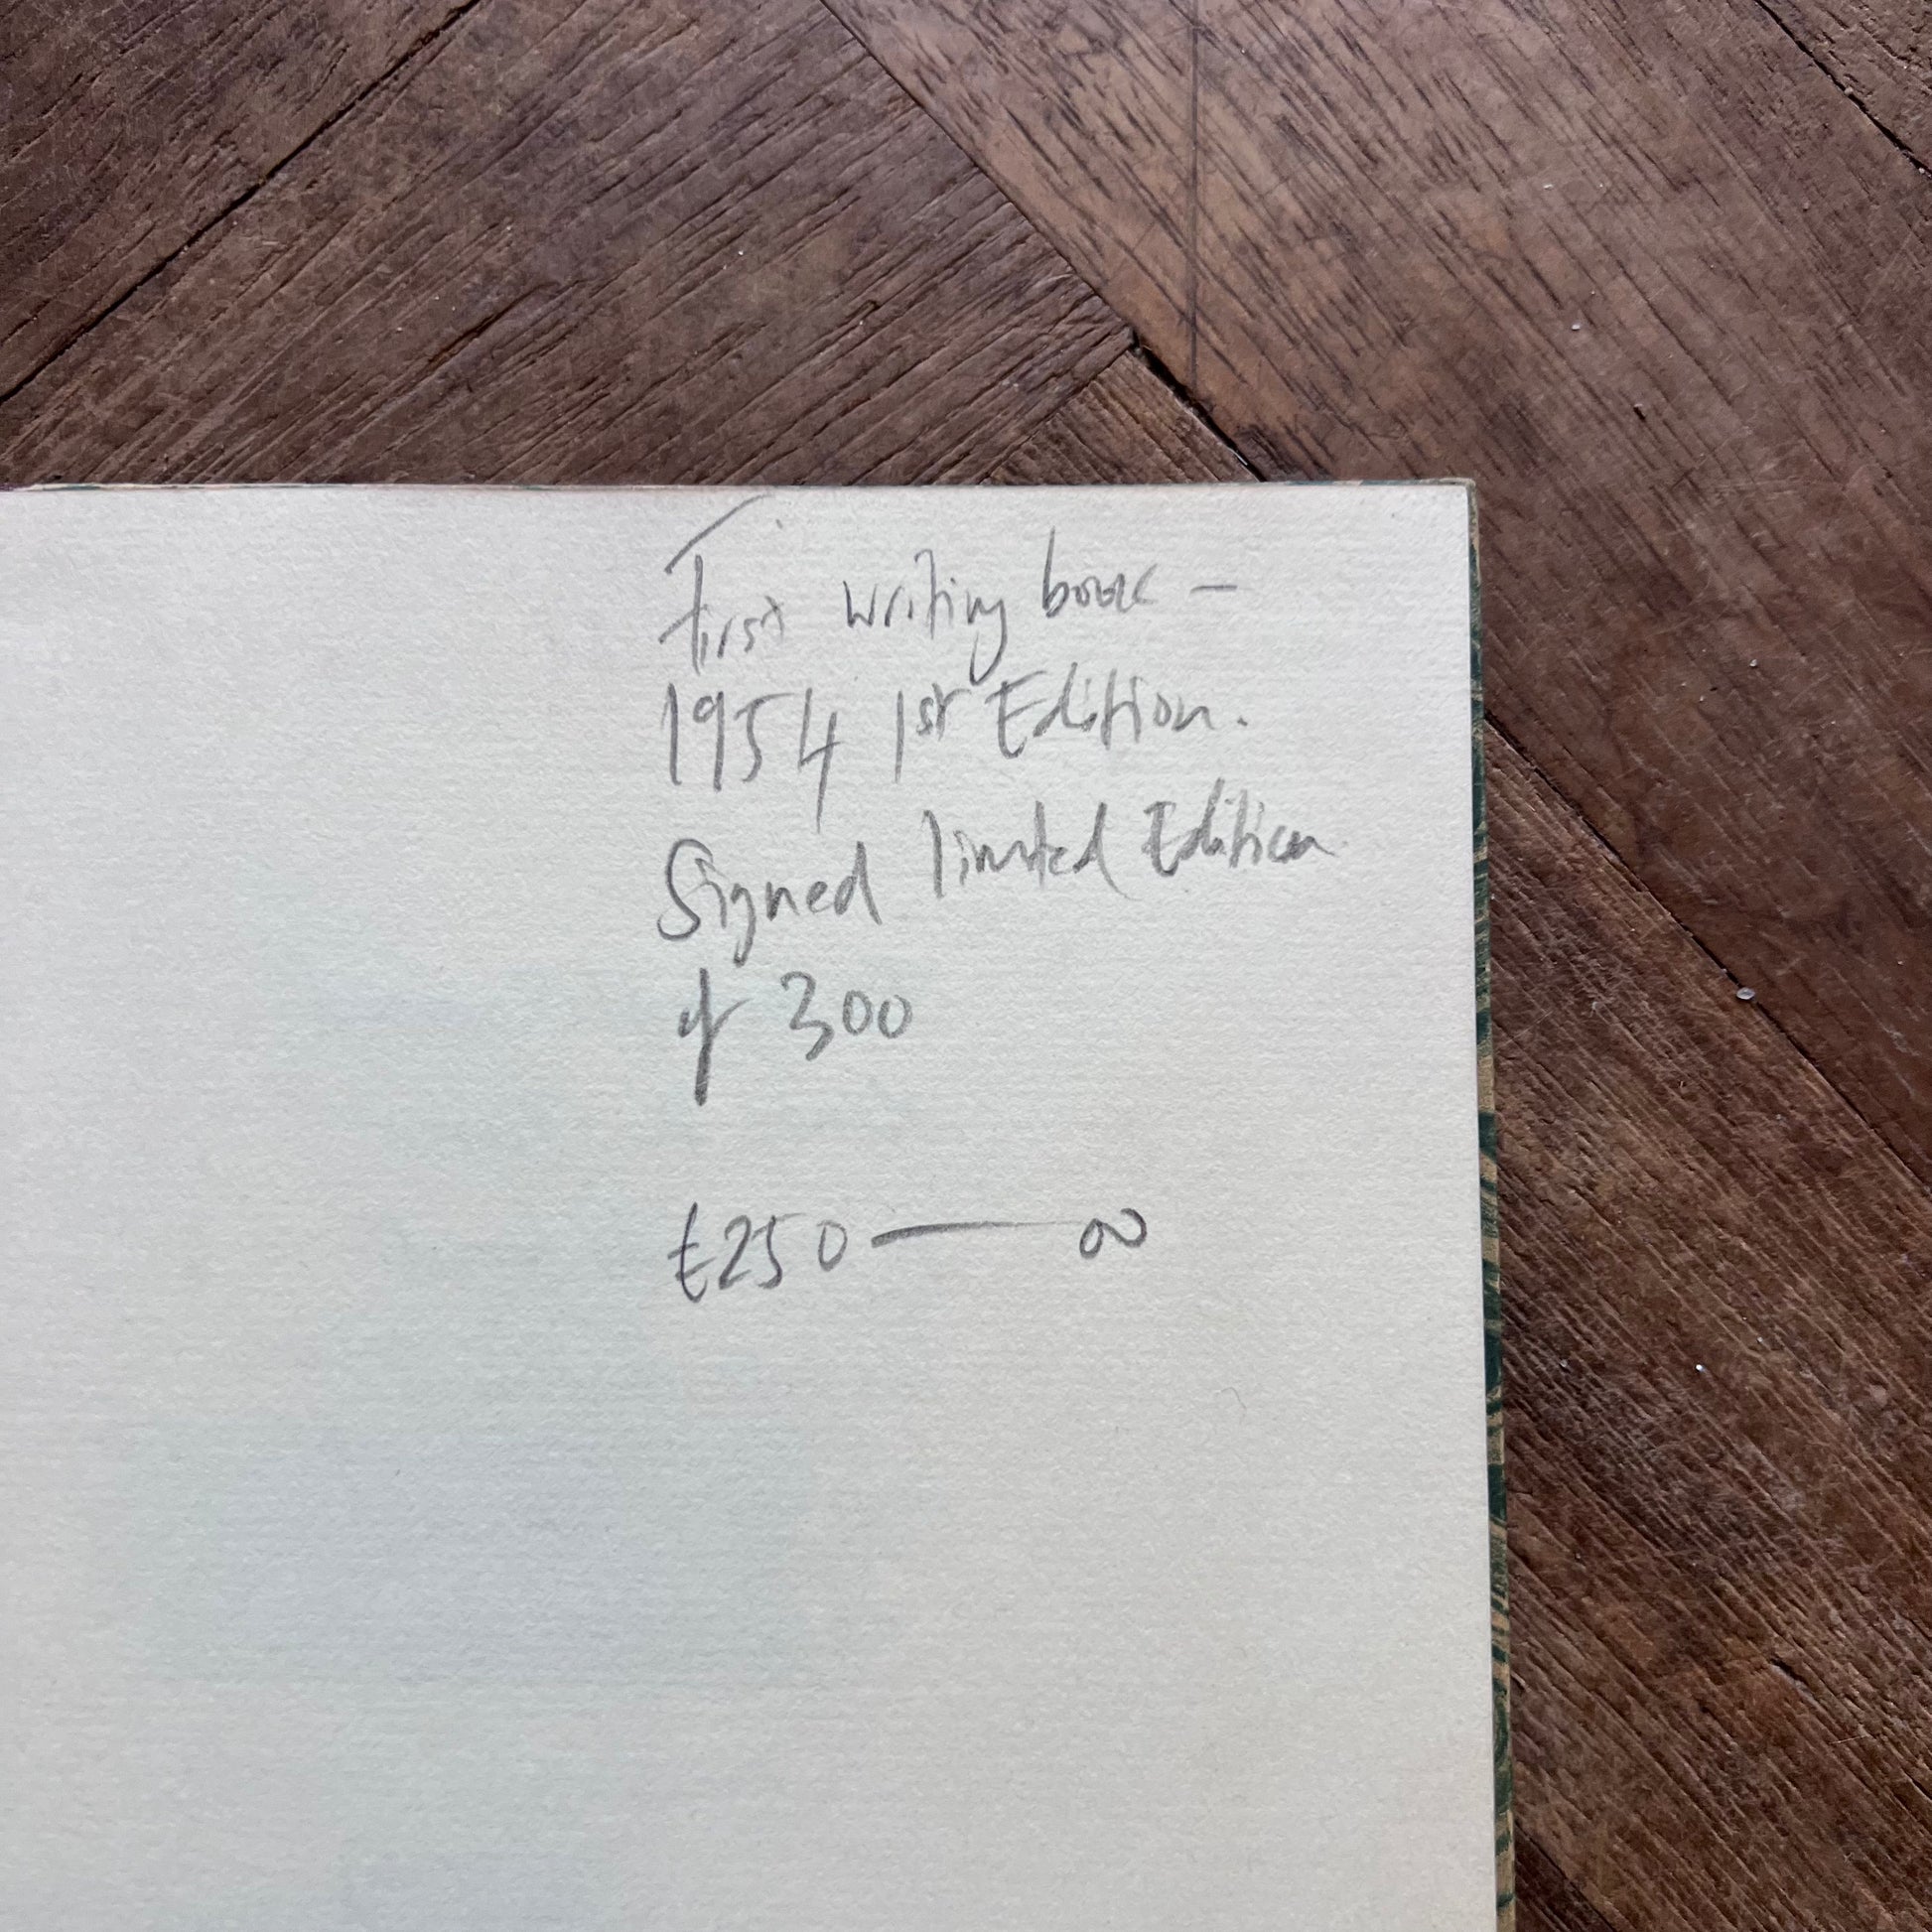 First writing book –
1954 1st Edition.
Signed limited Edition
of 300
£250 — 00